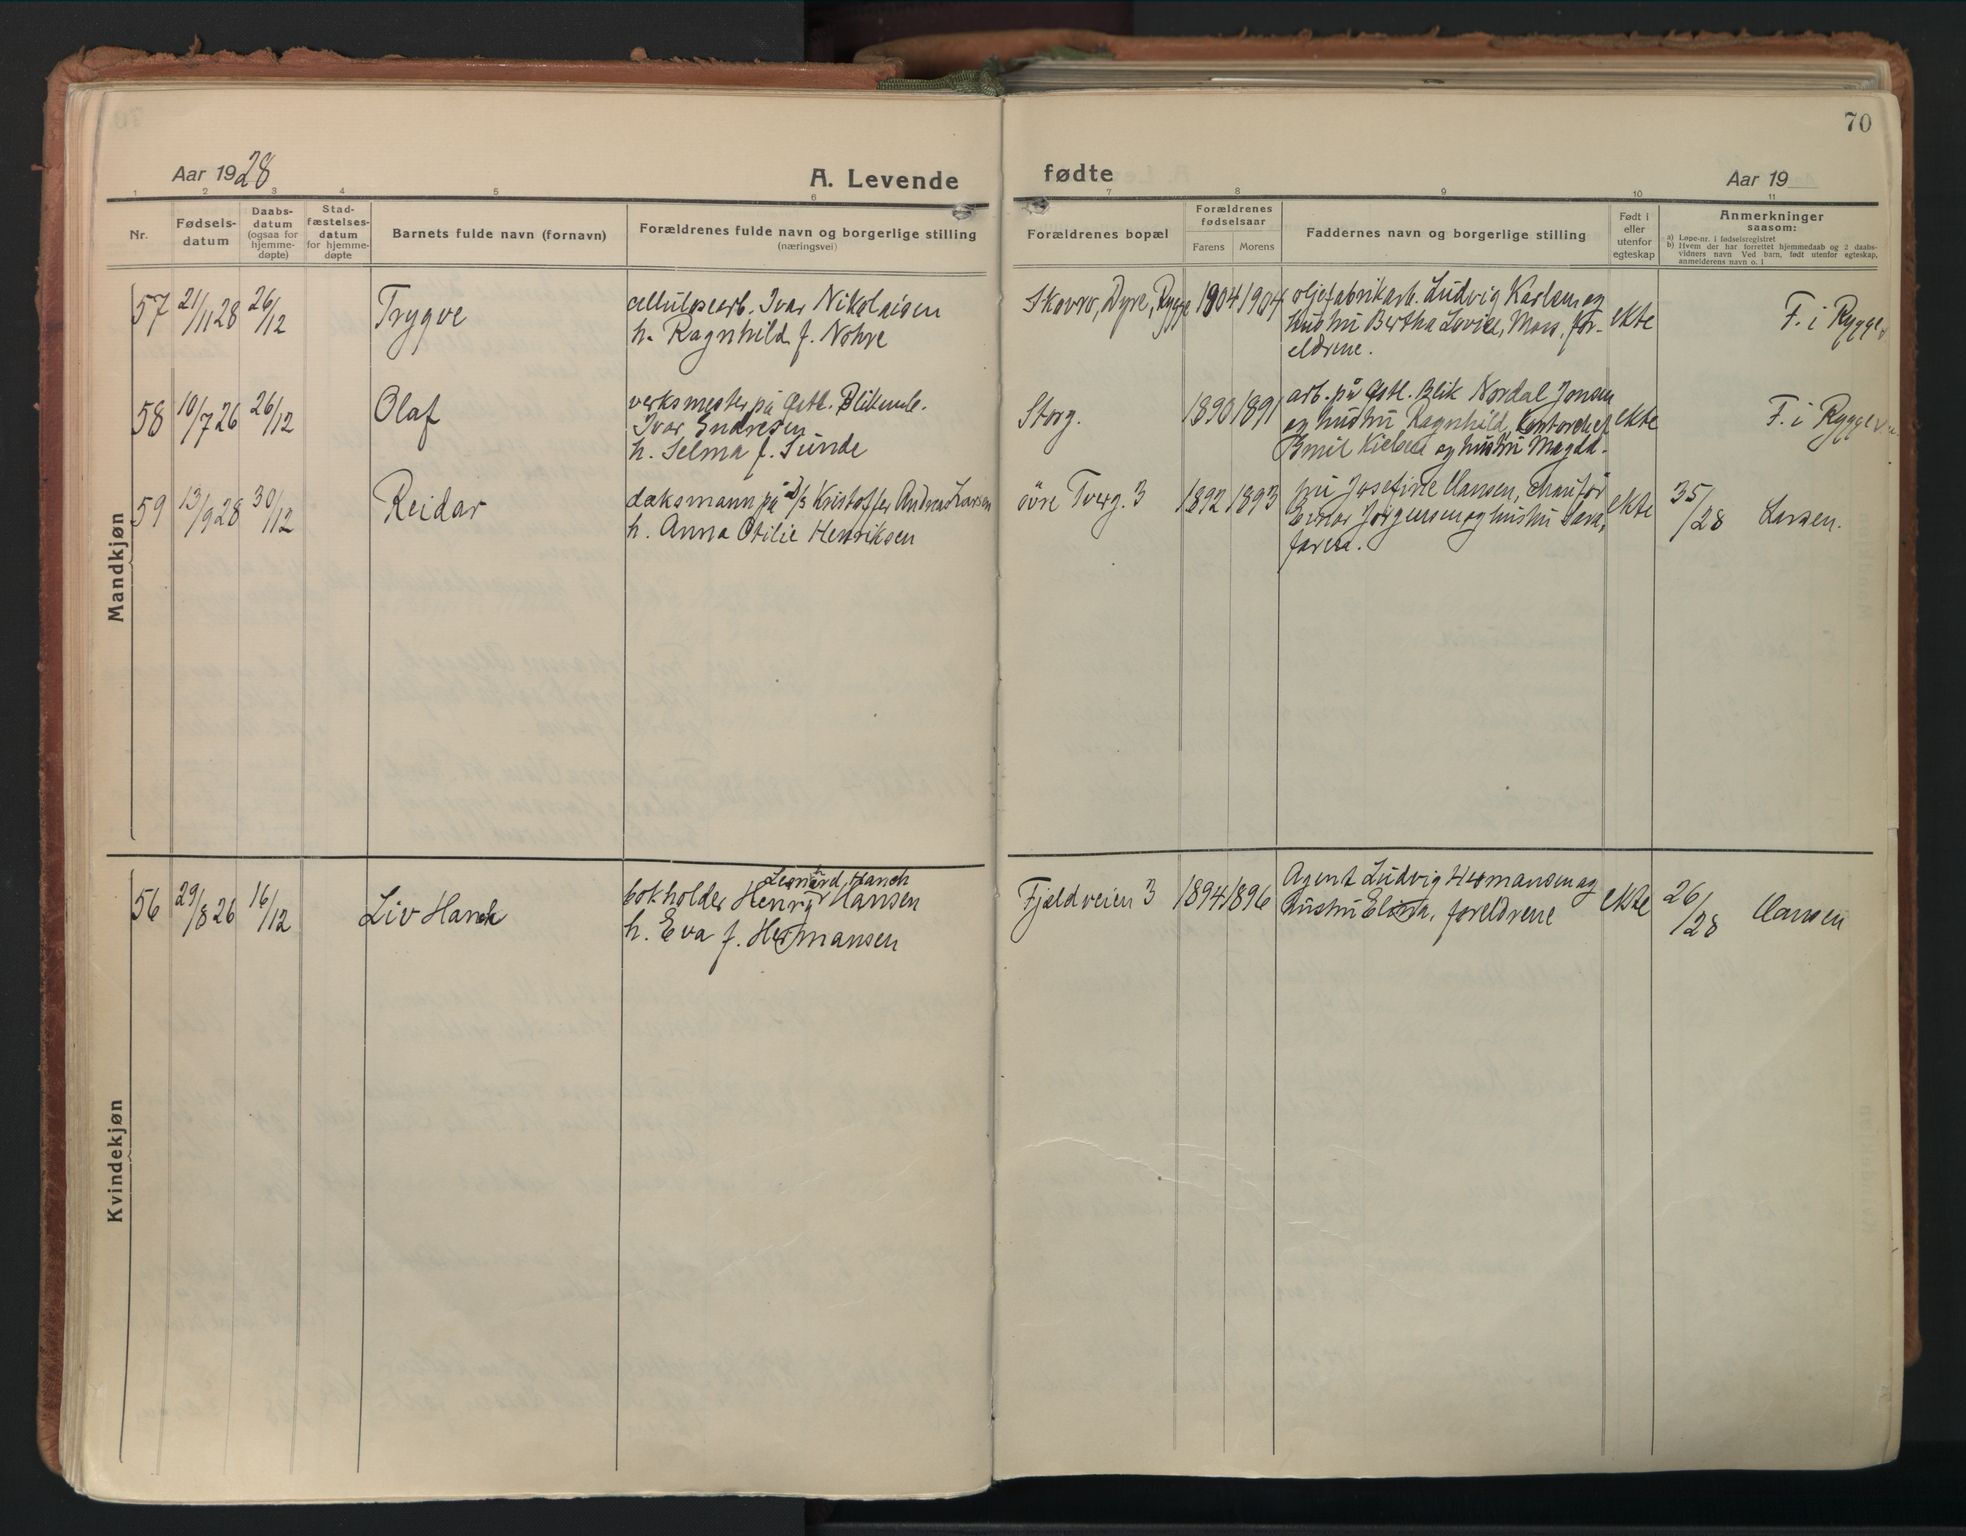 70
Aar 1928
A. Levende
fødte
Aar 19
1 2 3 4 5 6 7 8 9 10 11
Nr.
Fødsels-
datum
Daabs-
datum
(ogsaa for
hjemme-
døpte)
Stad-
fæstelses-
datum
for hjemme-
døpte
Barnets fulde navn (fornavn)
Forældrenes fulde navn og borgerlige stilling
(næringsvei)
Forældrenes bopæl
Forældrenes
fødselsaar
Farens Morens
Faddernes navn og borgerlige stilling
Født i
eller
utenfor
egteskap
Anmerkninger
saasom:
a) Løpe-nr. i fødselsregistret
b) Hvem der har forrettet hjemmedaab og 2 daabs-
vidners navn Ved barn, født utenfor egteskap,
anmelderens navn o. l
Mandkjøn
57 21/11 28 26/12 Trygve cellulosearb. Ivar Nikolaisen
h. Ragnhild f. Nohre
Dyre, Rygge 1904 1904 oljefabrikarb. Ludvig Karlsen og
hustru Bertha Lovise, Moss, for-
eldrene.
ekte F. i Rygge
58 10/7 26 26/12 Olaf verksmester på Østl. Blikemb.
Ivar Endresen
h. Selma f. Sunde
Storg. 1890 1891 arb. på Østl. Blik Nordal Jonsen
og hustru Ragnhild, kontorchef
Emil Kielsen og hustru Magda.
ekte F. i Rygge
59 13/9 28 30/12 Reidar dæksmann på D/S Kristoffer Andreas Larsen
h. Anna Otilie Henriksen
øvre Tverg. 3 1892 1893 fru Josefine Hansen, chauffør
Einar Jørgensen og hustru Sara,
farens.
ekte 35/28 Larsen.
Kvindekjøn
56 29/8 26 16/12 Liv Hanch Leonard Hanch
bokholder Henry Hansen
h. Eva f. Hermansen
Fjældveien 3 1894 1896 Agent Ludvig Hermansen og
hustru Elina, foreldrene
ekte 26/28 Hansen